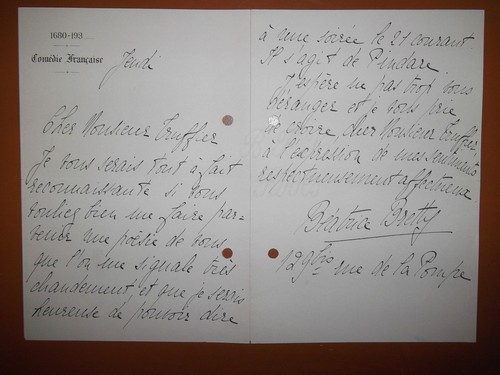 1680-193
Comédie Française
Jeudi
Cher Monsieur Truffier
Je vous serais tout à fait
reconnaissante si vous
vouliez bien me faire par-
venir une poésie de vous
que l'on me signale très
chaudement, et que je serais
heureuse de pouvoir dire
à une soirée le 21 courant.
Il s'agit de Pindare.
J'espère ne pas trop vous
déranger et je vous prie
de croire cher Monsieur Truffier
à l'expression de mes sentiments
respectueusement affectueux
Béatrice Bretty
129bis rue de la Pompe